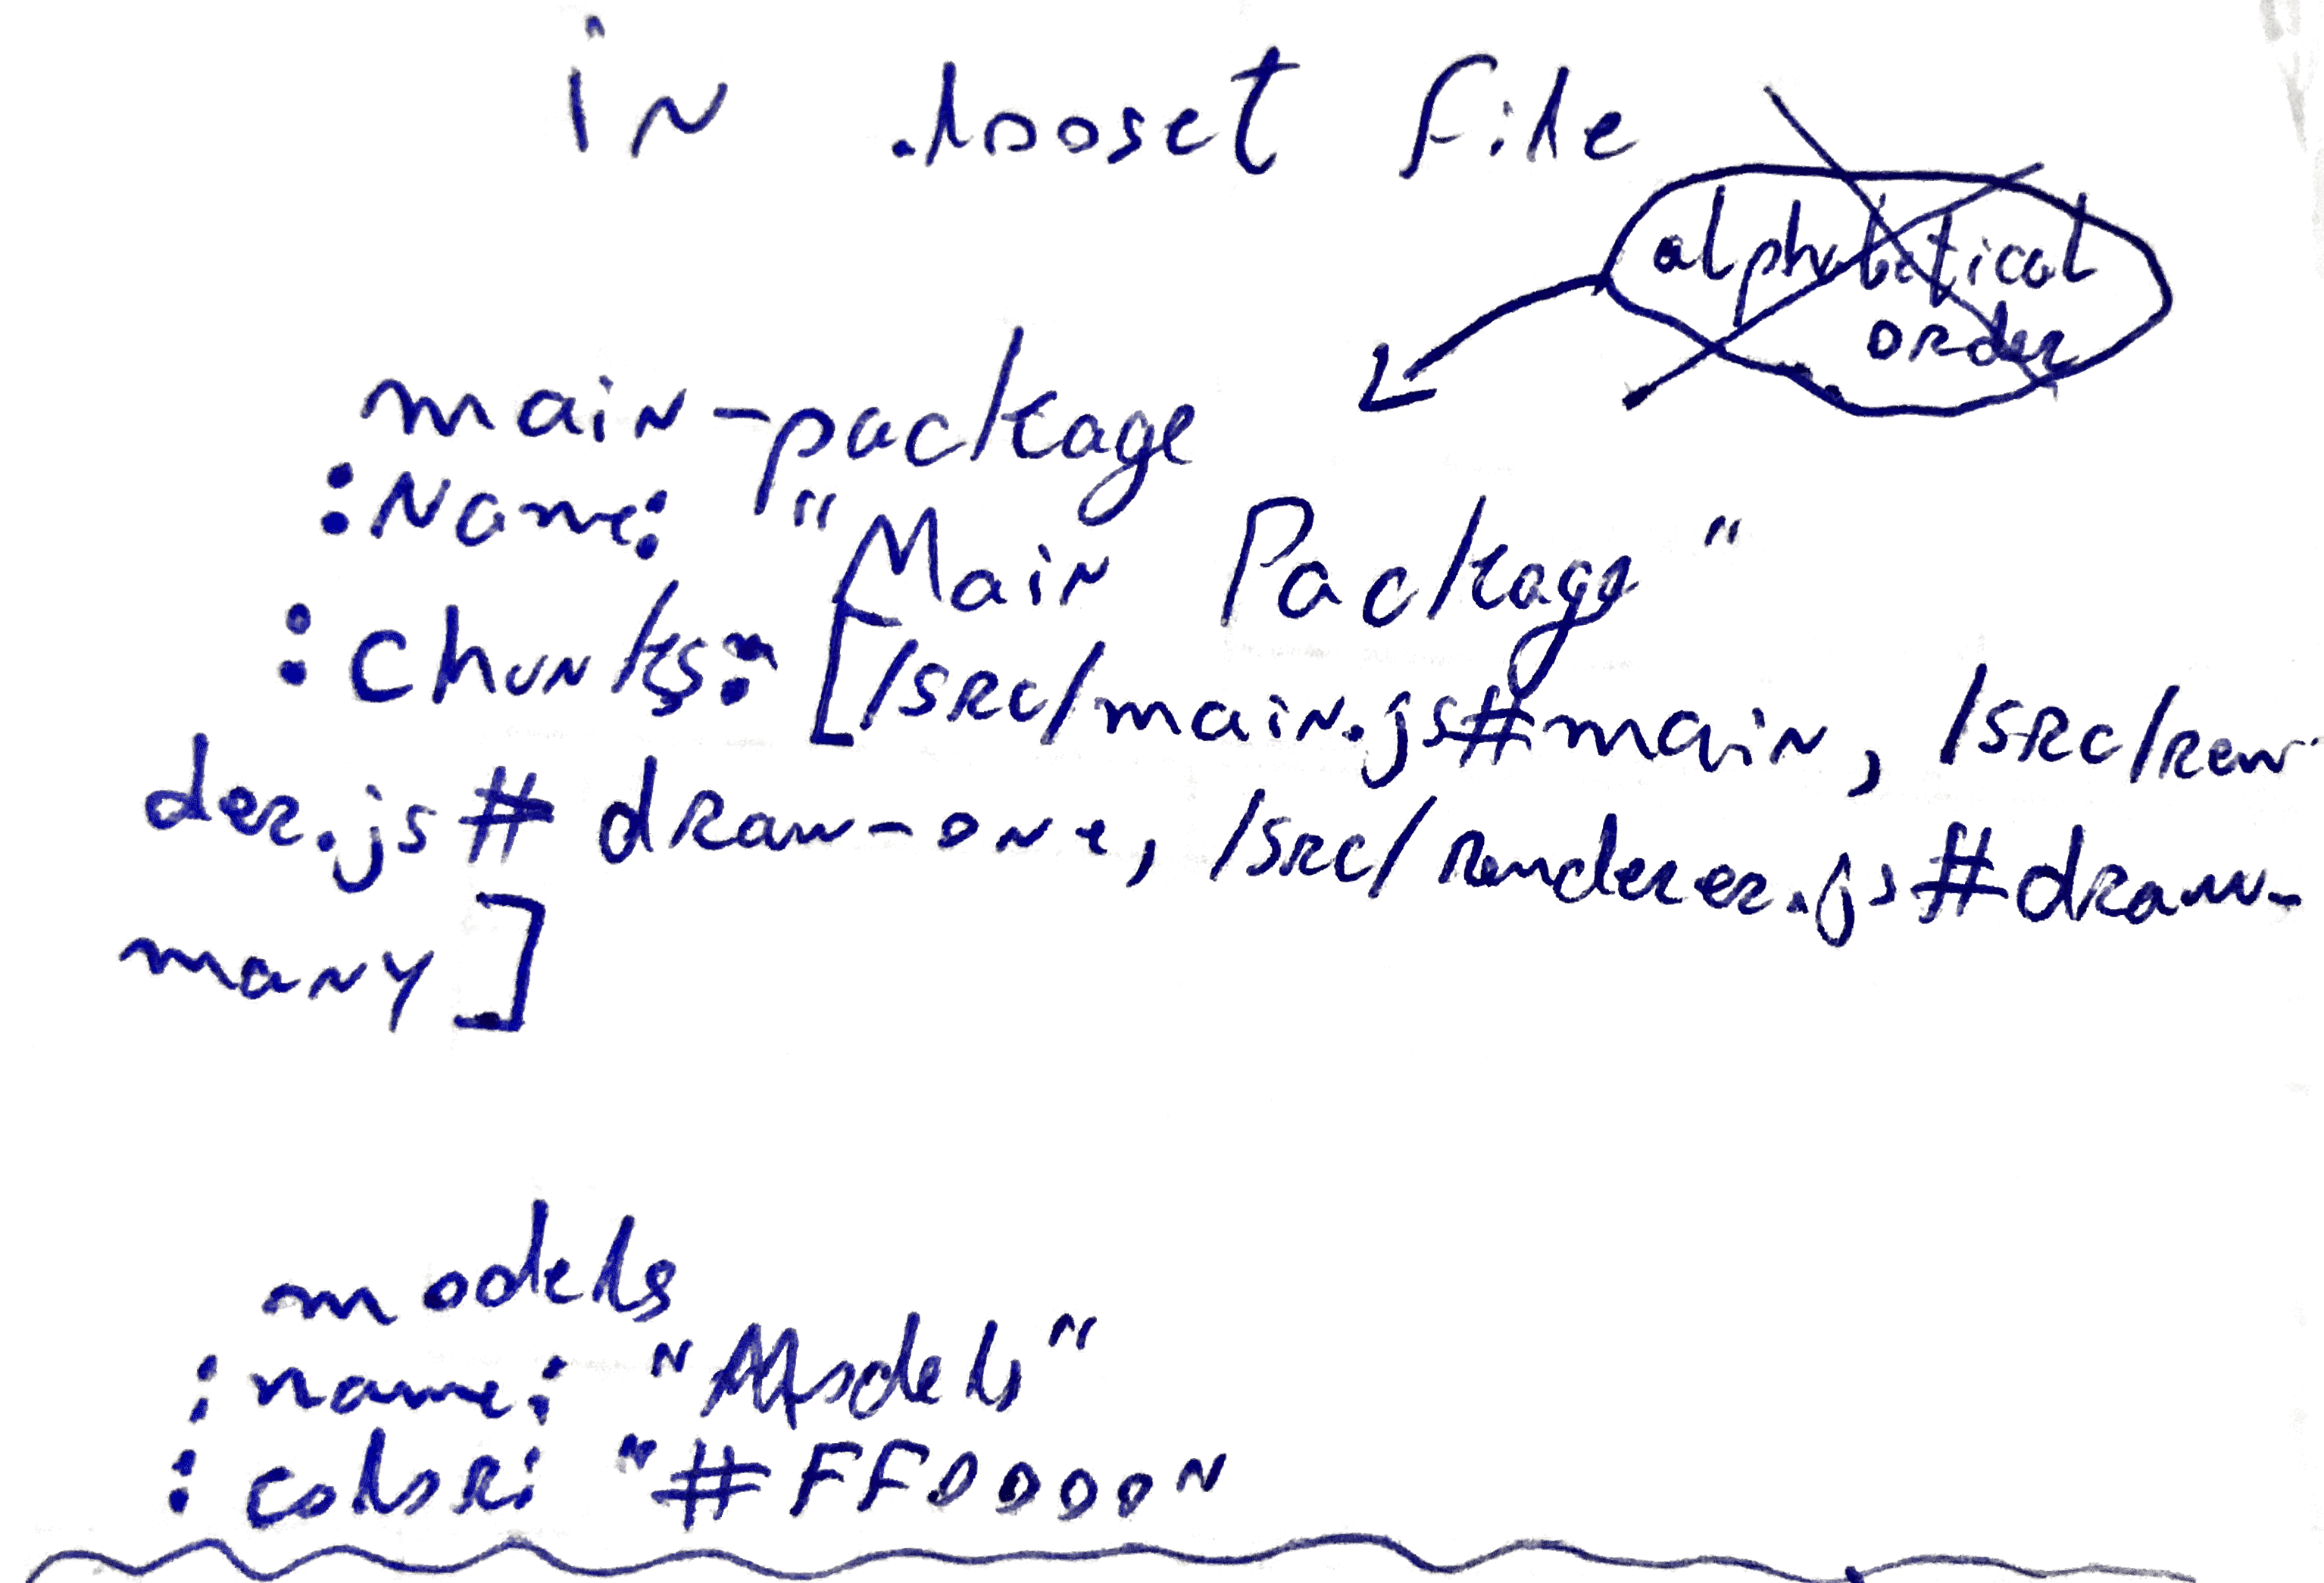 in .looset file
alphabetical
order
main-package
:name: "Main Package"
:chunks: [/src/main.js#main, /src/ren
der.js#draw-one, /src/renderer.js#draw-
many]
models
:name: "Models"
:color: "#FF0000"